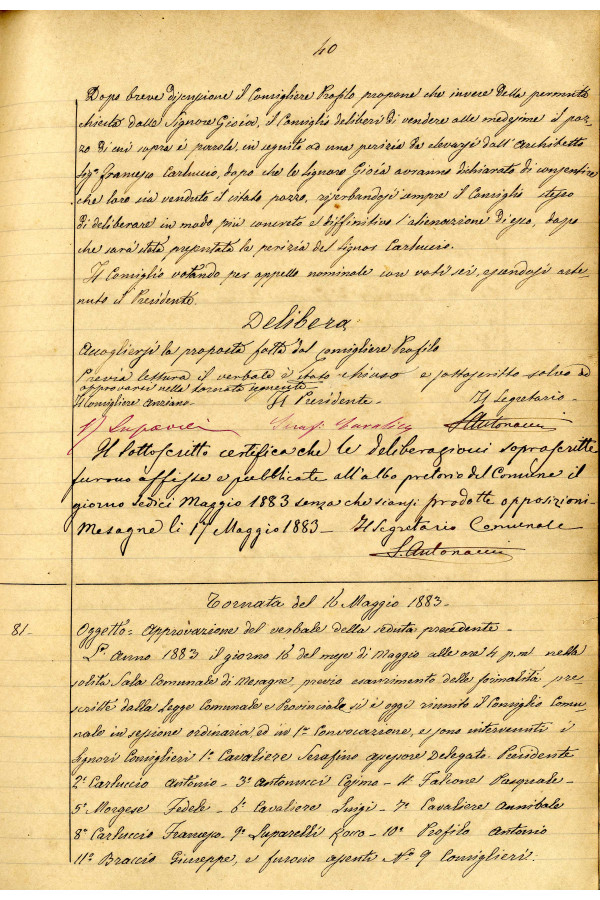 40
Dopo breve discussione il Consigliere Profilo propone che invece della permuta
chiesta dalle Signore Gioia, il Consiglio deliberi di vendere alle medesime il poz-
zo di cui sopra è parola, in seguito ad una perizia da elevarsi dall'Architetto
Sigr Francesco Carluccio, dopo che le Signore Gioia avranno dichiarato di consentire
che loro sia venduto il citato pozzo, riserbandosi sempre il Consiglio stesso
di deliberare in modo più concreto e diffinitivo l'alienazione di esso, dopo
che sarà stata presentata la perizia del Signor Carluccio.
Il Consiglio votando per appello nominale con voti sei, essendosi aste-
nuto il Presidente.
Delibera
Accogliersi la proposta fatta dal Consigliere Profilo
Previa lettura il verbale è stato chiuso e sottoscritto salvo ad
approvarsi nella tornata seguente
Il Consigliere Anziano Il Presidente Il Segretario
S. Antonucci
Il sottoscritto certifica che le deliberazioni soprascritte
furono affisse e pubblicate all'albo pretorio del Comune il
giorno sedici Maggio 1883 senza che siansi prodotte opposizioni-
Mesagne li 17 Maggio 1883 - Il Segretario Comunale
S. Antonucci
Tornata del 16 Maggio 1883-
81-
Oggetto = Approvazione del verbale della seduta precedente-
L'Anno 1883 il giorno 16 del mese di Maggio alle ore 4 p.m. nella
solita Sala Comunale di Mesagne previo esaurimento delle formalità pre-
scritte dalla Legge Comunale e Provinciale si è oggi riunito il Consiglio Comu-
nale in sessione ordinaria ed in 1a Convocazione, e sono intervenuti i
Signori Consiglieri 1o Cavaliere Serafino assessore Delegato Presidente
2o Carluccio Antonio - 3o Antonucci Cosimo - 4o Falcone Pasquale -
5o Morgese Fedele - 6o Cavaliere Luigi - 7o Cavaliere Annibale
8o Carluccio Francesco 9o Luparelli Rocco - 10o Profilo Antonio
11o Braccio Giuseppe, e furono assenti No 9 Consiglieri.